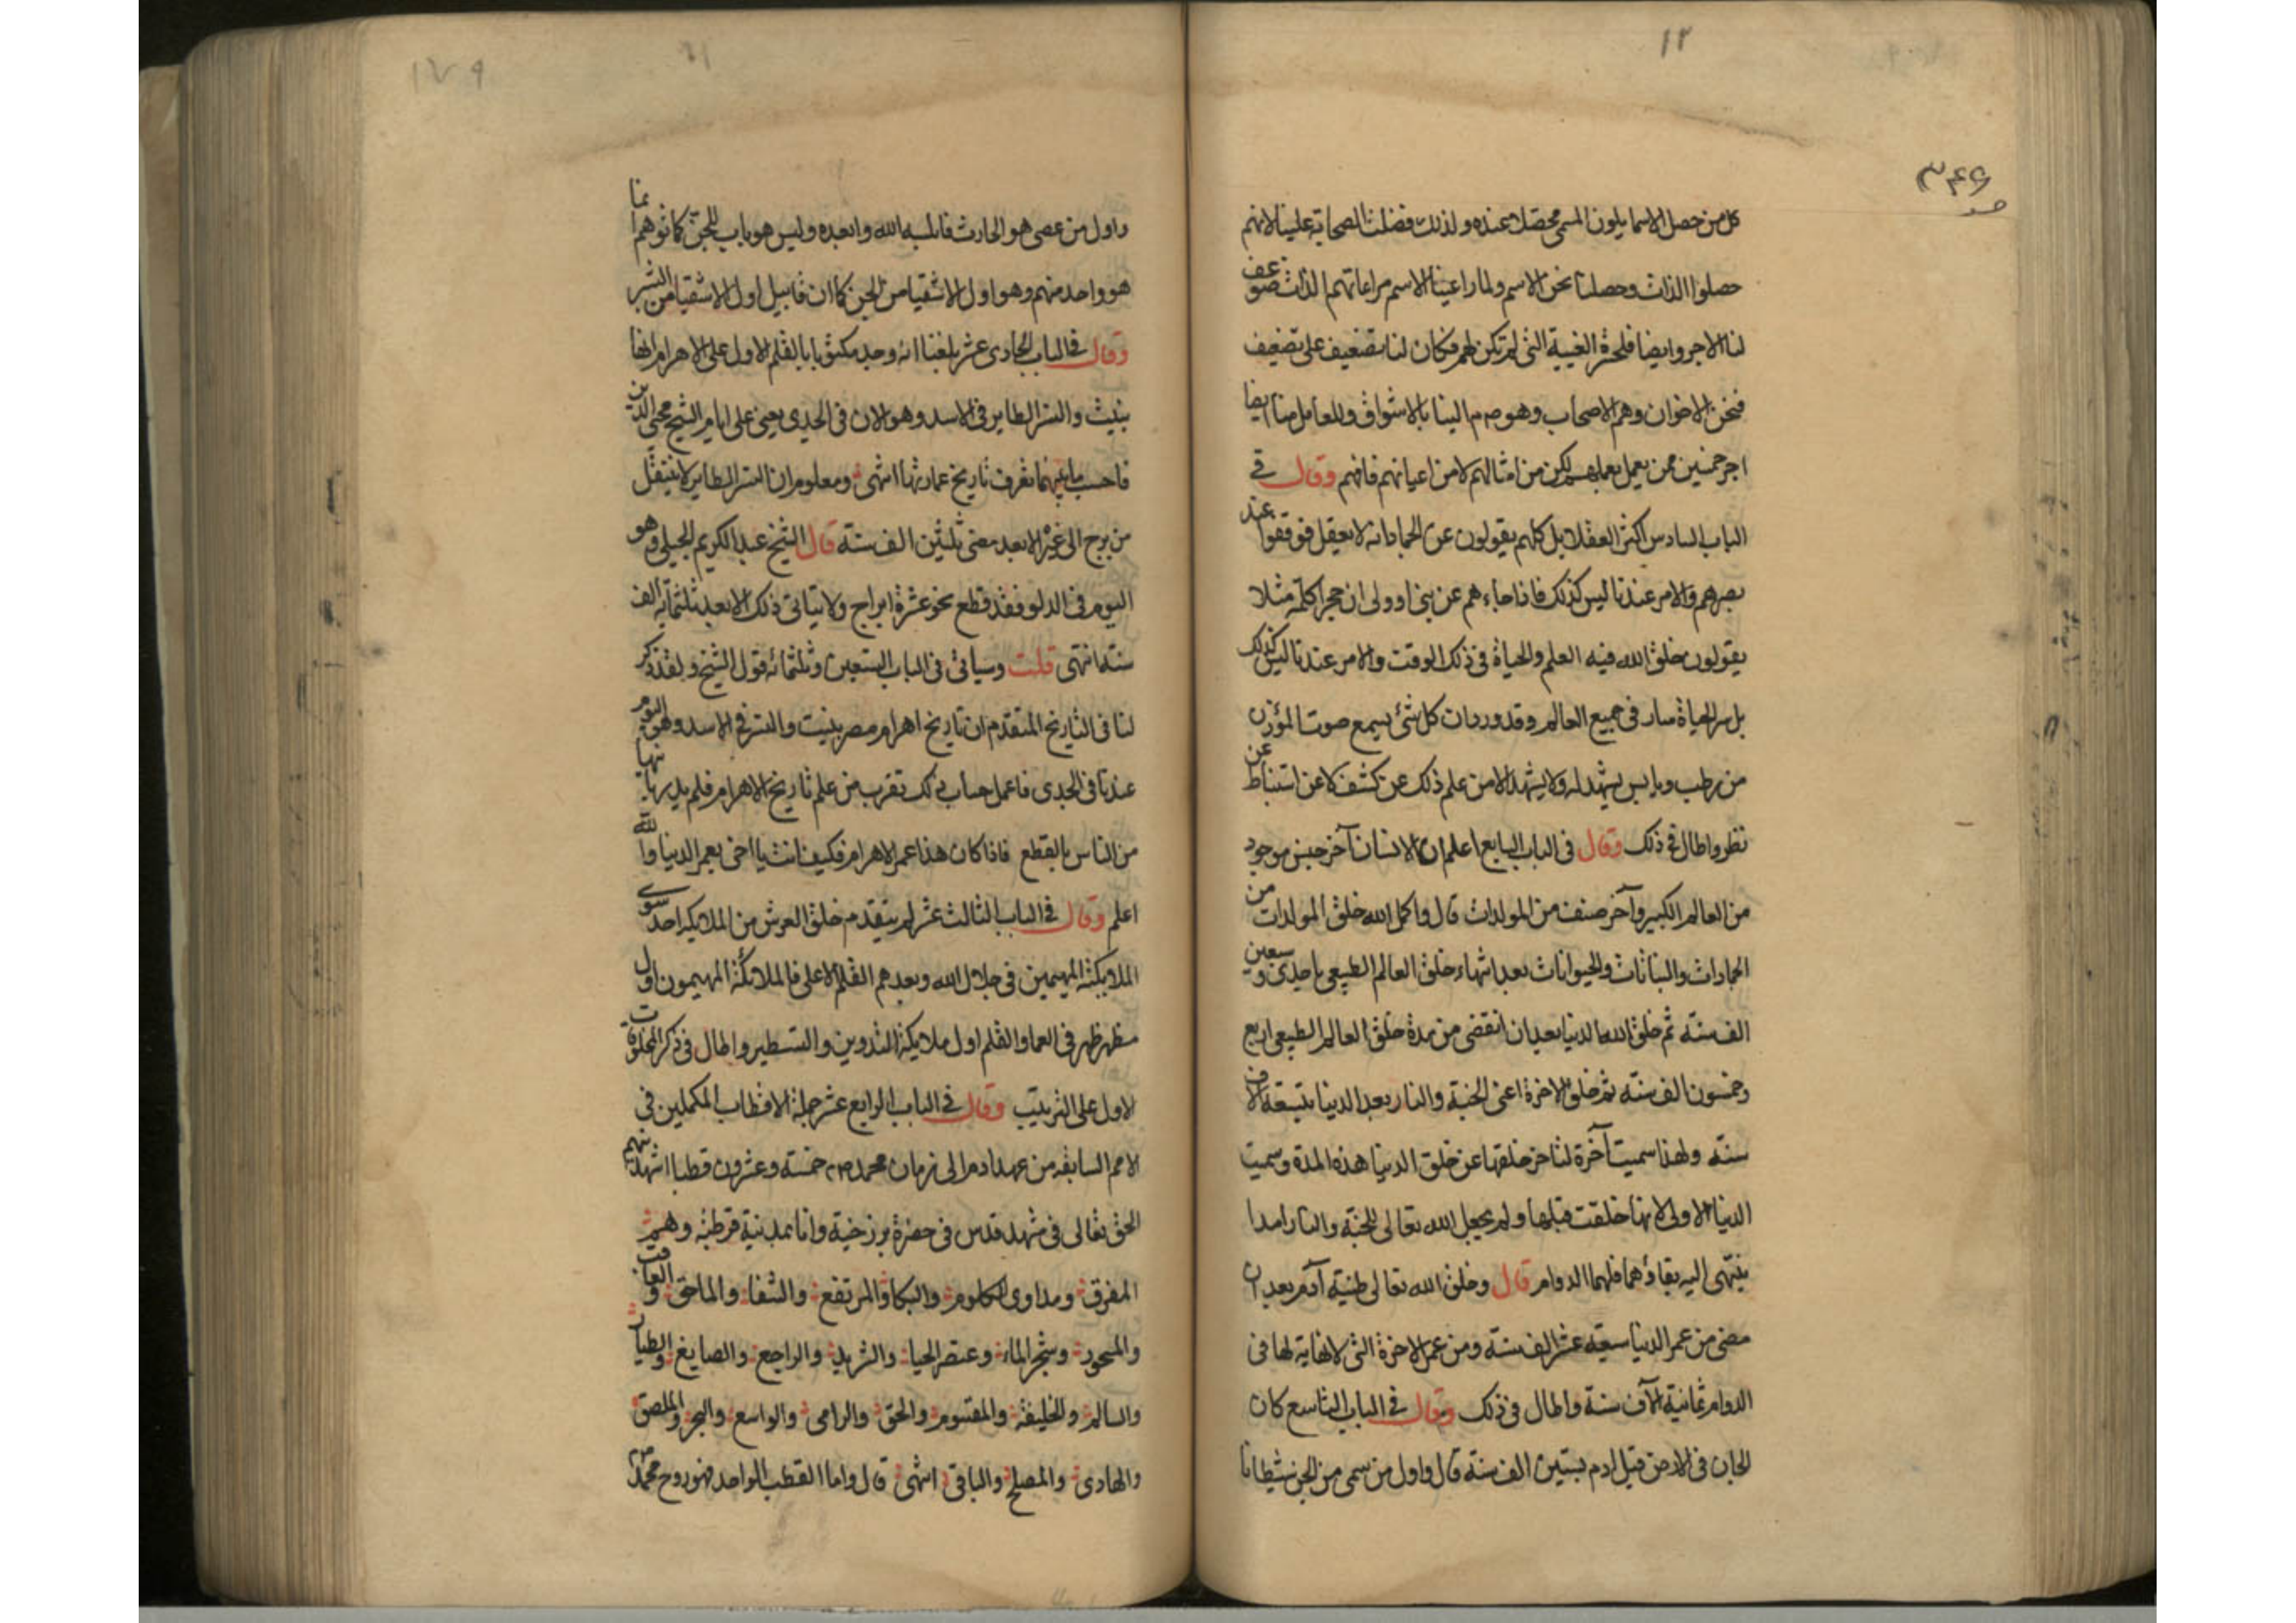 ١٢
٣٤٦
كل من حصل الاسما يلون المسمى محصلا عنده ولذلك فضلت الصحابة علينا لانهم
حصلوا الذات وحصلنا نحن الاسم ولما راعينا الاسم مراعاتهم الذات ضوعف
لنا الاجر وايضا فلحسرة الغيبة التى لم تكن لهم فكان لنا تضعيف على تضعيف
فنحن الاخوان وهم الاصحاب وهو صم الينا بالاشواق وللعامل منا ايضا
اجر خمسين ممن يعمل بعملهم لكن من امثالهم لا من اعيانهم فافهم وقال فى
الباب السادس اكثر العقلا بل كلهم يقولون عن الجمادات لا يعقل فوقفوا عند
بصرهم والامر عندنا ليس كذلك فاذا جاءهم عن بنى او ولى ان حجرا كلمه مثلا
يقولون خلق الله فيه العلم والحياة فى ذلك الوقت والامر عندنا ليس كذلك
بل سر الحياة سار فى جميع العالم وقد ورد ان كل شئ يسمع صوت المؤذن
من رطب ويابس يشهد له ولا يشهد الا من علم ذلك عن كشف لا عن استنباط عن
نظر واطال فى ذلك وقال فى الباب السابع اعلم ان الانسان آخر جنس موجود
من العالم الكبير وآخر صنف من المولدات قال واكمل الله خلق المولدات من
الجمادات والنباتات والحيوانات بعد انتهاء خلق العالم الطبيعى باحدى وسبعين
الف سنة ثم خلق الله الدنيا بعد ان انقضى من مدة خلق العالم الطبيعى اربع
وخمسون الف سنة ثم خلق الاخرة اعنى الجنة والنار بعد الدنيا بتسعة الاف
سنة ولهذا سميت آخرة لتاخر خلقها عن خلق الدنيا هذه المدة وسميت
الدنيا الاولى لانها خلقت قبلها ولم يجعل الله تعالى للجنة والنار امدا
ينتهى اليه بقاؤهما فلهما الدوام قال وخلق الله تعالى طينة آدم بعد ان
مضى من عمر الدنيا سبعة عشر الف سنة ومن عمر الاخرة التى لا نهاية لها فى
الدوام ثمانية آلاف سنة واطال فى ذلك وقال فى الباب التاسع كان
الجان فى الارض قبل ادم بستين الف سنة قال واول من سمى من الجن شيطانا
١٧٩
واول من عصى هو الحارث فابلسه الله وابعده وليس هو باب للجن كما توهما
هو واحد منهم وهو اول الاشقيا من الجن كما ان قابيل اول الاشقيا من البشر
وقال فى الباب الحادى عشر بلغنا انه وجد مكتوبا بالقلم الاول على الاهرام انها
بنيت والنسر الطاير فى الاسد وهو الان فى الجدى يعنى على ايام الشيخ محيى الدين
فاحسب ما بينهما تعرف تاريخ عمارتها انتهى ومعلوم ان النسر الطاير لا ينتقل
من برج الى غيره الا بعد مضى ثلثين الف سنة قال الشيخ عبد الكريم الجيلى وهو
اليوم فى الدلو فقد قطع نحو عشرة ابراج ولا يتاتى ذلك الا بعد ثلثمايه الف
سنة انتهى قلت وسياتى فى الباب التسعين وثلثمائه قول الشيخ ولقد ذكر
لنا فى التاريخ المتقدم ان تاريخ اهرام مصر بنيت والنسر فى الاسد وهو اليوم
عندنا فى الجدى فاعمل حساب ذلك تقرب من علم تاريخ الاهرام فلم يدر بانيها
من الناس بالقطع فاذا كان هذا عمر الاهرام فكيف انت يا اخى بعمر الدنيا والله
اعلم وقال فى الباب الثالث عشر لم يتقدم خلق العرش من الملايكة احد سوى
الملايكة المهيمين فى جلال الله وبعدهم القلم الاعلى فالملائكة المهيمون اول
مظهر ظهر فى العما والقلم اول ملايكة التدوين والتسطير واطال فى ذكر المخلوقات
الاول على الترتيب وقال فى الباب الرابع عشر جملة الاقطاب المكملين فى
الامم السابقه من عهد ادم الى زمان محمد صم خمسة وعشرون قطبا اشهدنيهم
الحق تعالى فى مشهد قدس فى حضرة برزخية وانا بمدينة قرطبة وهم
المفرق ومداوى الكلوم والبكا والمرتفع والشفا والماحق والعاقب
والمنحور وشجر الماء وعنصر الحيا والشريد والراجع والصايغ والطيار
والسالم والخليفة والمقسوم والحق والرامى والواسع والبحر والملصق
والهادى والمصلح والباقى انتهى قال واما القطب الواحد فهو روح محمد صم